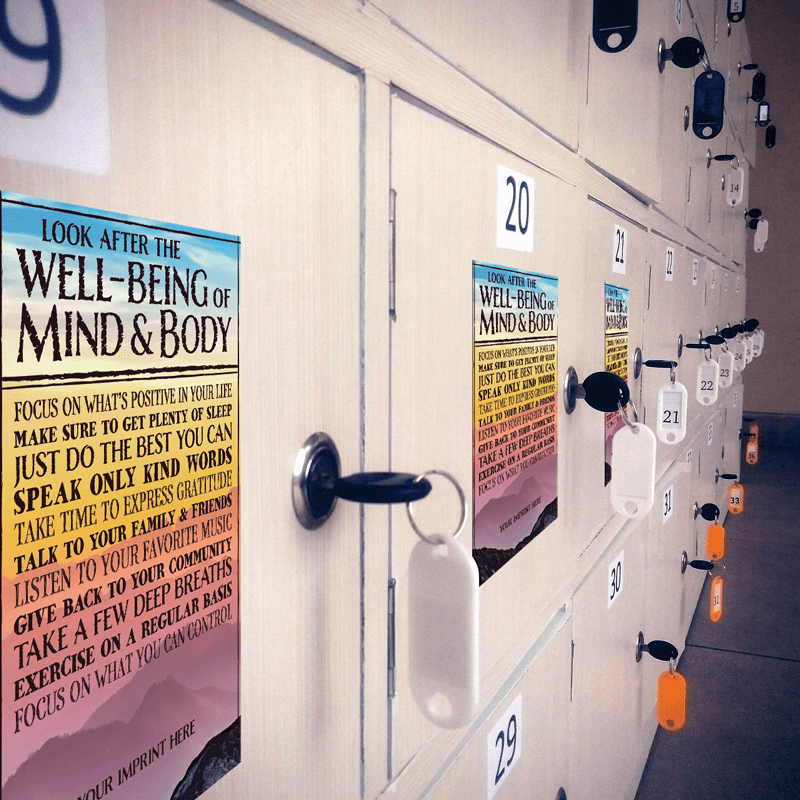 9
LOOK AFTER THE
WELL-BEING OF
MIND & BODY
FOCUS ON WHAT'S POSITIVE IN YOUR LIFE
MAKE SURE TO GET PLENTY OF SLEEP
JUST DO THE BEST YOU CAN
SPEAK ONLY KIND WORDS
TAKE TIME TO EXPRESS GRATITUDE
TALK TO YOUR FAMILY & FRIENDS
LISTEN TO YOUR FAVORITE MUSIC
GIVE BACK TO YOUR COMMUNITY
TAKE A FEW DEEP BREATHS
EXERCISE ON A REGULAR BASIS
FOCUS ON WHAT YOU CAN CONTROL
YOUR IMPRINT HERE
20
LOOK AFTER THE
WELL-BEING OF
MIND & BODY
FOCUS ON WHAT'S POSITIVE IN YOUR LIFE
MAKE SURE TO GET PLENTY OF SLEEP
JUST DO THE BEST YOU CAN
SPEAK ONLY KIND WORDS
TAKE TIME TO EXPRESS GRATITUDE
TALK TO YOUR FAMILY & FRIENDS
LISTEN TO YOUR FAVORITE MUSIC
GIVE BACK TO YOUR COMMUNITY
TAKE A FEW DEEP BREATHS
EXERCISE ON A REGULAR BASIS
FOCUS ON WHAT YOU CAN CONTROL
YOUR IMPRINT HERE
21
22
21
22
23
24
14
5
29
30
31
33